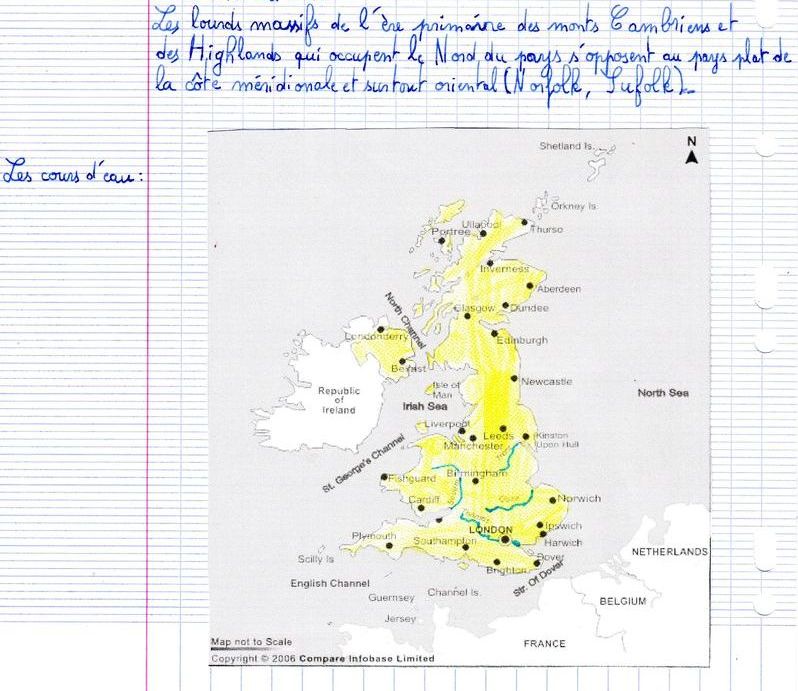 Les lourds massifs de l'ère primaire des monts Cambriens et
des Highlands qui occupent le Nord du pays s'opposent au pays plat de
la côte méridionale et surtout oriental (Norfolk, Sufolk).
Les cours d'eau :
Shetland Is.
N
Orkney Is.
Ullapool
Thurso
Portree
Inverness
Aberdeen
Glasgow
Dundee
North Channel
Londonderry
Edinburgh
Belfast
Newcastle
Republic
of
Ireland
Isle of
Man
North Sea
Irish Sea
Liverpool
Leeds
Kinston
Upon Hull
Manchester
St. George's Channel
Birmingham
Fishguard
Cardiff
Norwich
LONDON
Ipswich
Harwich
Plymouth
Southampton
Dover
Scilly Is
Brighton
Str. Of Dover
NETHERLANDS
English Channel
Channel Is.
Guernsey
BELGIUM
Jersey
FRANCE
Map not to Scale
Copyright © 2006 Compare Infobase Limited